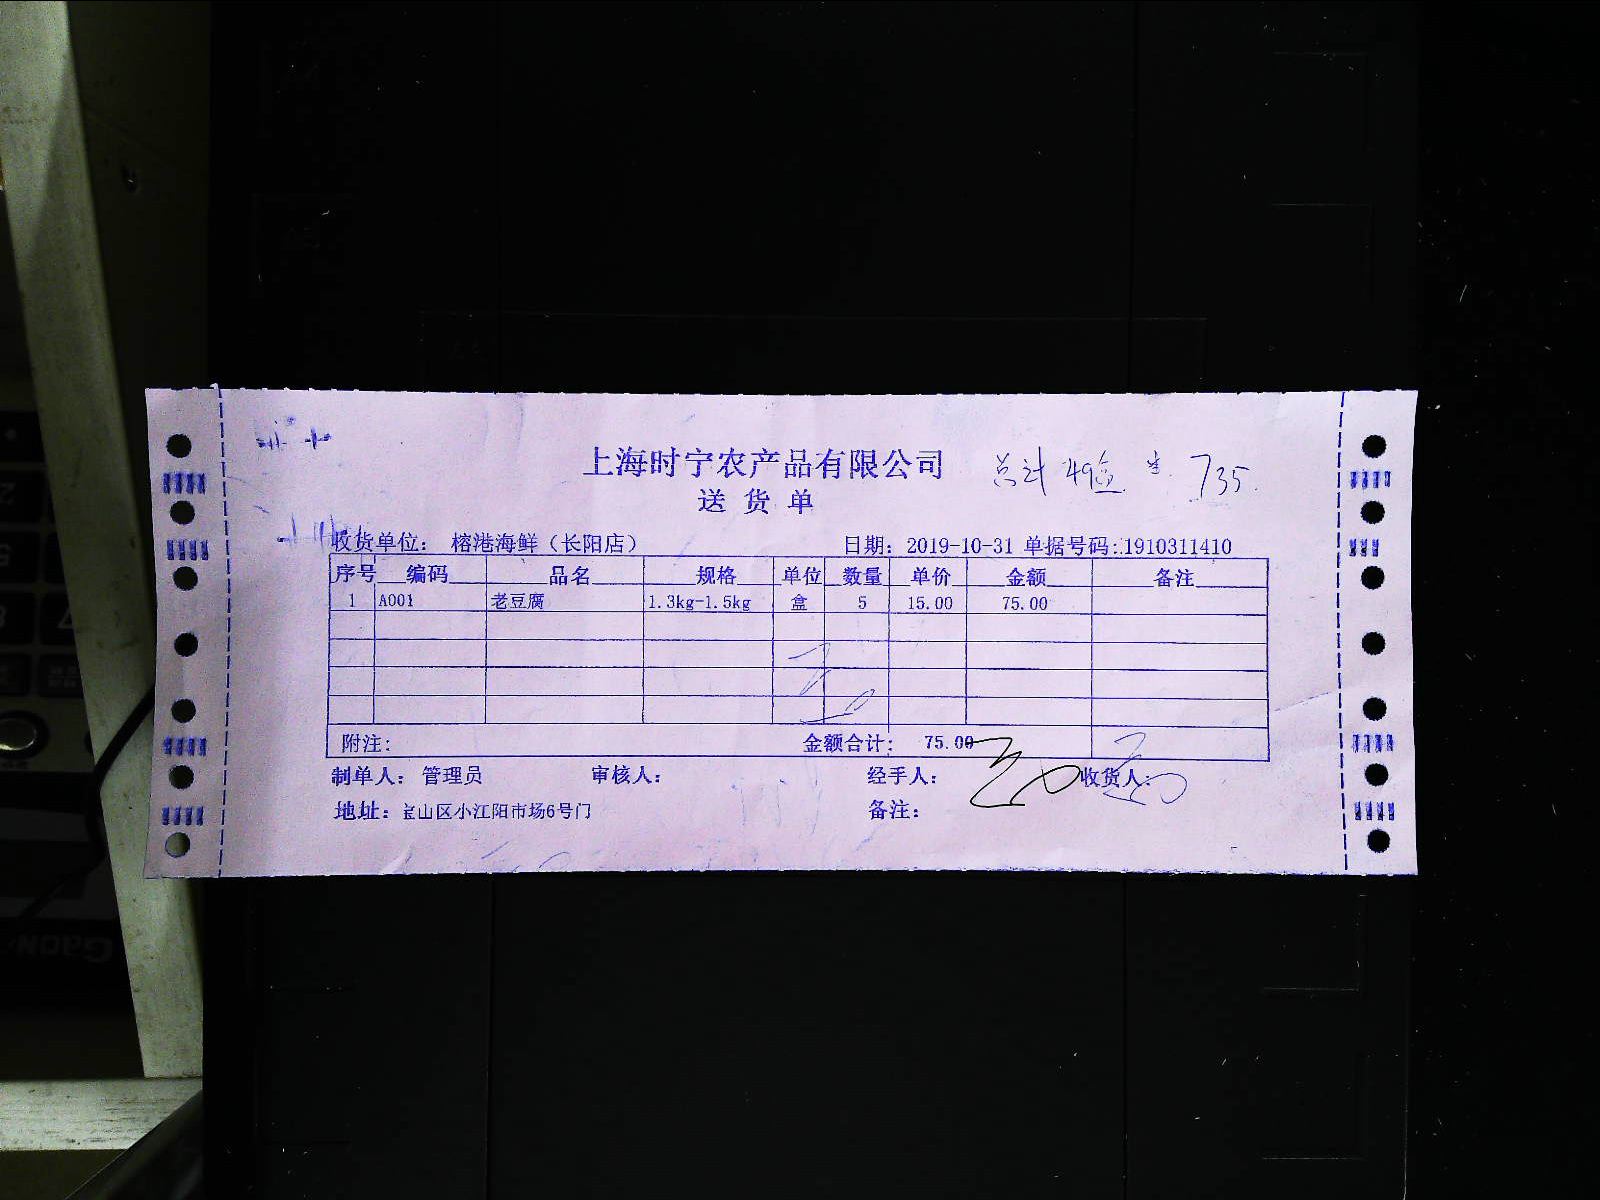 上海时宁农产品有限公司 总计 49盒 735
送货单
收货单位： 榕港海鲜（长阳店） 日期： 2019-10-31 单据号码：1910311410
序号 编码 品名 规格 单位 数量 单价 金额 备注
1 A001 老豆腐 1.3kg-1.5kg 盒 5 15.00 75.00
附注： 金额合计： 75.00
制单人： 管理员 审核人： 经手人： 收货人：
地址： 宝山区小江阳市场6号门 备注：